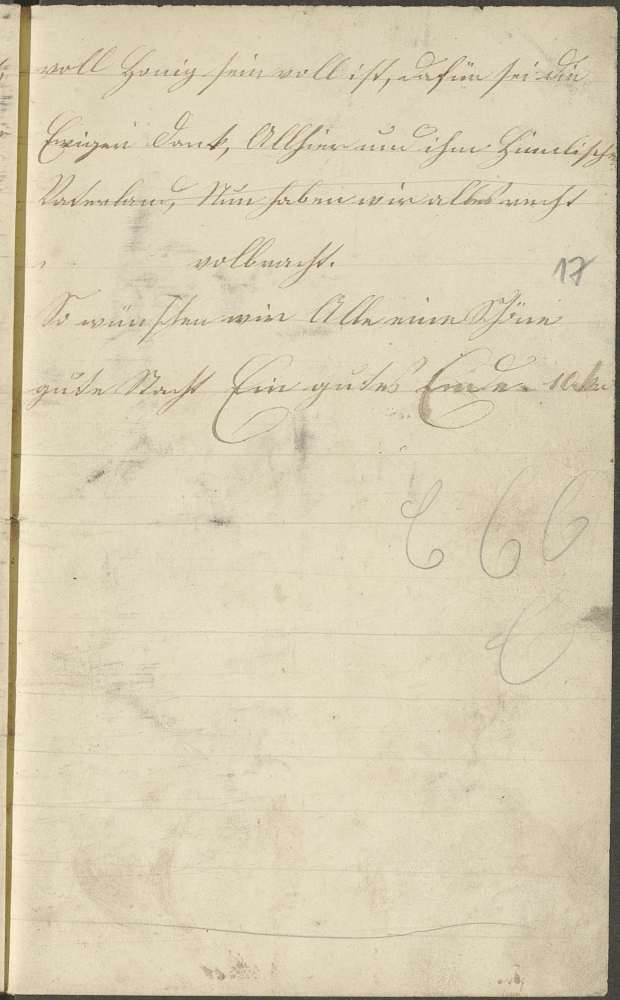 voll Honig sein voll ist, dafür sei dir
Ewigen Dank, Allhier und ihm Himlischen
Vaterland, Nun haben wir alles recht
volbracht.
17
So wünschen wir Alle eine Schöne
gute Nacht Ein gutes Ende